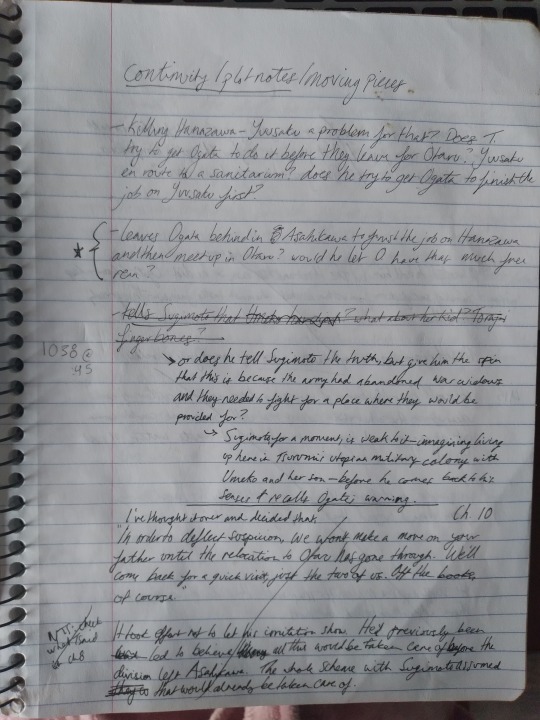 Continuity/plot notes/moving pieces
- Killing Hanazawa - Yuusaku a problem for that? Does T.
try to get Ogata to do it before they leave for Otaru? Yuusaku
en route to a sanitarium? does he try to get Ogata to finish the
job on Yuusaku first?
- leaves Ogata behind in Asahikawa to finish the job on Hanazawa
and then meet up in Otaru? would he let O have that much free
rein?
- tells Sugimoto that what about her kid?
finger bones?
1038 @
→ or does he tell Sugimoto the truth, but give him the spin
that this is because the army had abandoned war widows
and they needed to fight for a place where they would be
provided for?
→ Sugimoto, for a moment, is weak to it - imagining living
up here in Tsurumi's utopian military colony with
Umeko and her son - before he comes back to his
senses & recalls Ogata's warning.
I've thought it over and decided that Ch. 10
"In order to deflect suspicion, we won't make a move on your
father until the relocation to Otaru has gone through. We'll
come back for a quick visit, just the two of us. Off the books,
of course."
NTS: check
what's said
in ch8
It took effort not to let his irritation show. He'd previously been
led to believe all this would be taken care of before the
division left Asahikawa. The whole scheme with Sugimoto assumed
that would already be taken care of.